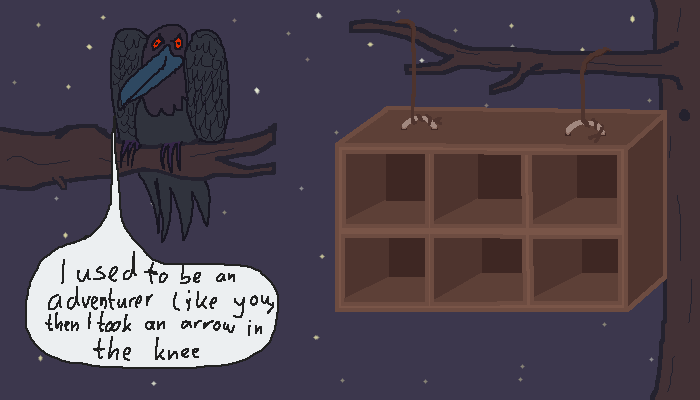 I used to be an
adventurer like you,
then I took an arrow in
the knee